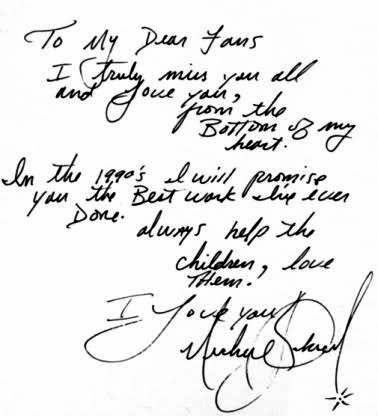 To My Dear Fans
I truly miss you all
and love you,
from the
Bottom of my
heart.
In the 1990's I will promise
you the Best work I've ever
Done.
always help the
children, love
Them.
I love you
Michael Jackson